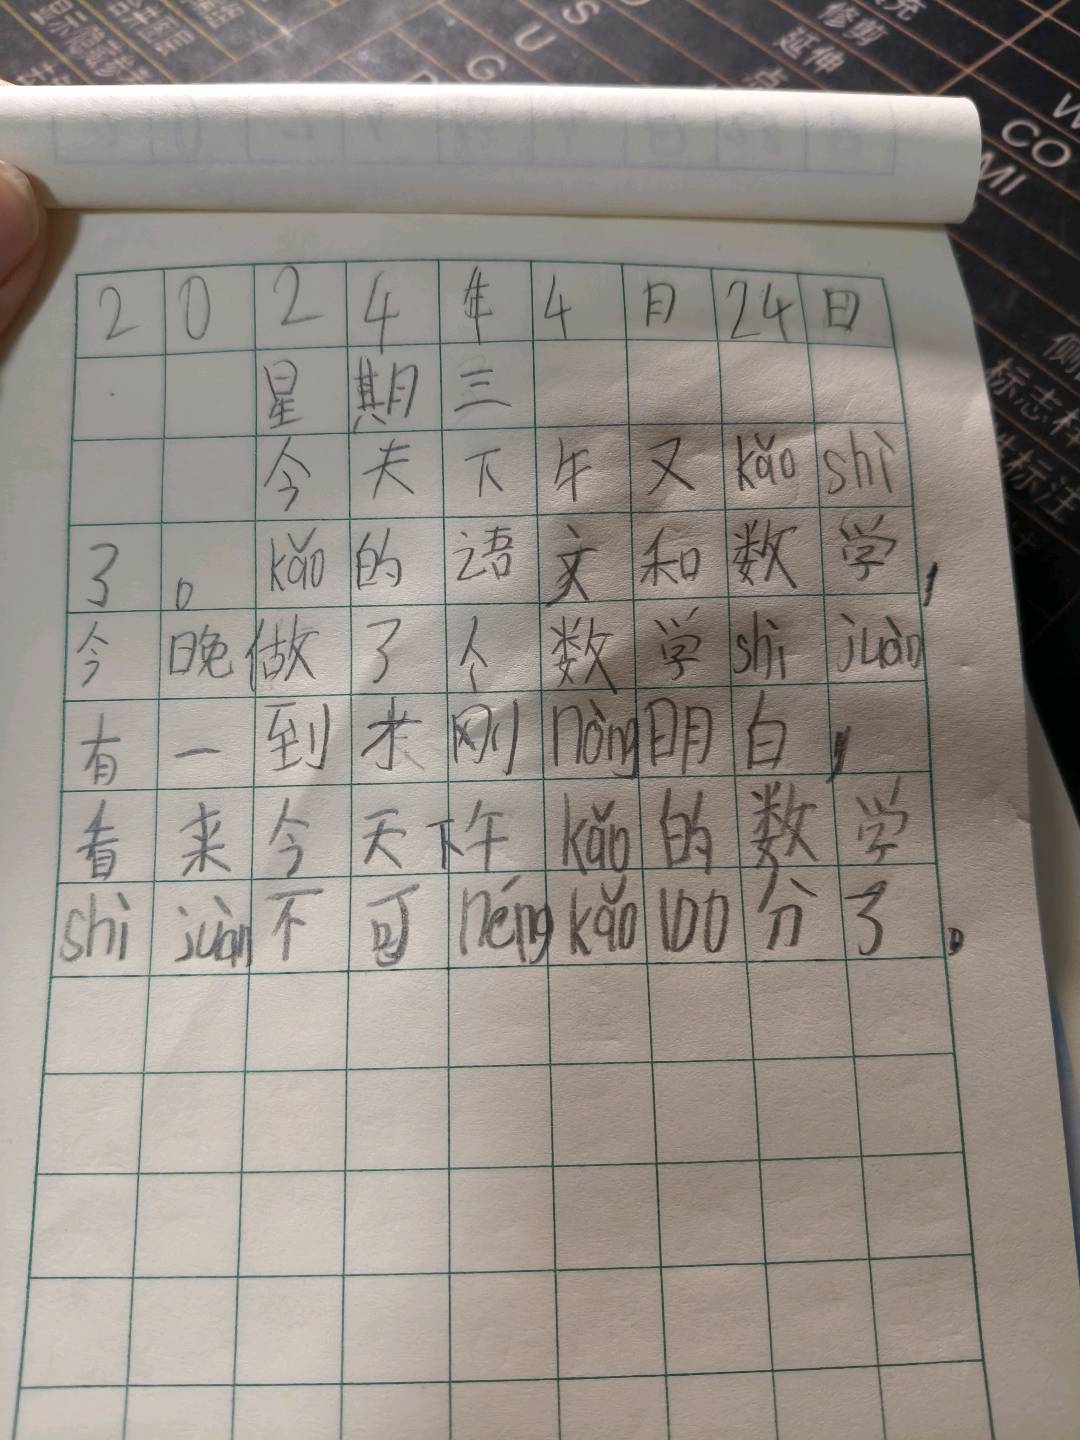 充
修剪
延伸
点
S
U
G
W
CO
MI
标志样
标注
2024年4月24日
星期三
今天下午又kǎo shì
了。kǎo的语文和数学，
今晚做了个数学shì juàn
有一到木刚nòng明白，
看来今天下午kǎo的数学
shì juàn不可néng kǎo 100分了。